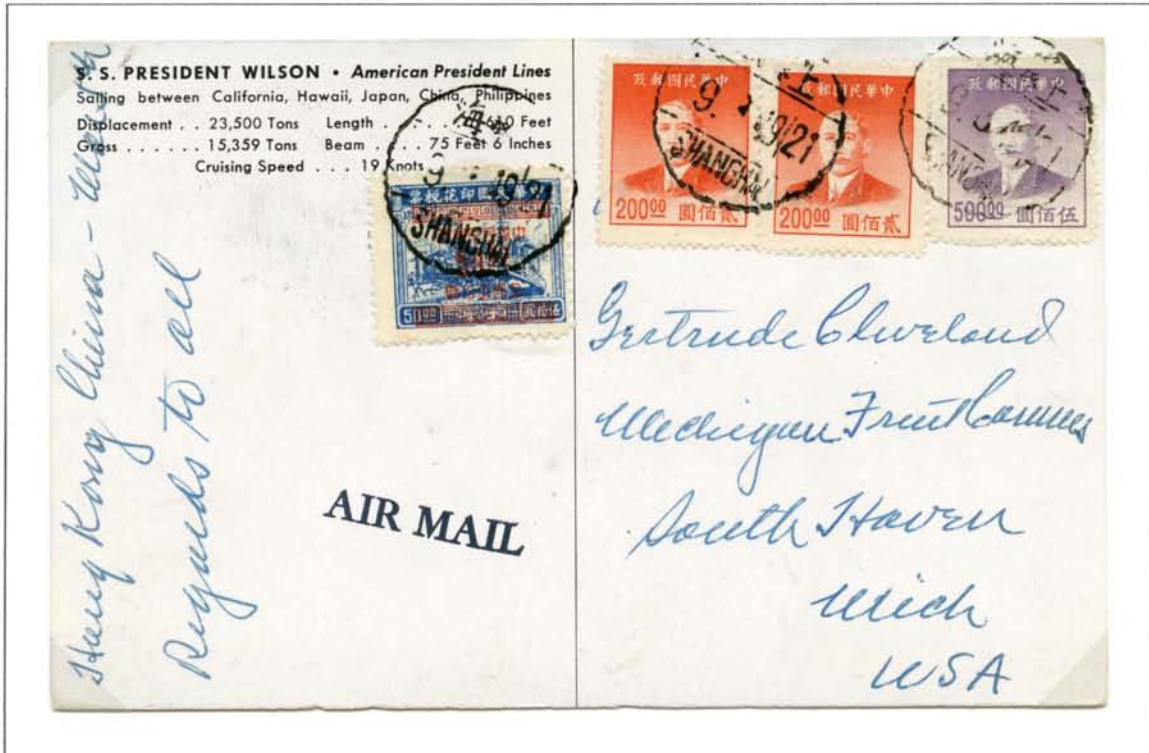 S. S. PRESIDENT WILSON • American President Lines
Sailing between California, Hawaii, Japan, China, Philippines
Displacement . . 23,500 Tons Length . . . . . . . 610 Feet
Gross . . . . . . 15,359 Tons Beam . . . . 75 Feet 6 Inches
Cruising Speed . . . 19 Knots
Hong Kong China - March
Regards to all
AIR MAIL
政郵國民華中
200 00 圓佰貳
政郵國民華中
200 00 圓佰貳
政郵國民華中
500 00 圓佰伍
SHANGHAI
SHANGHAI
50 00
Gertrude Cleveland
Michigan Fruit Canners
South Haven
Mich
USA